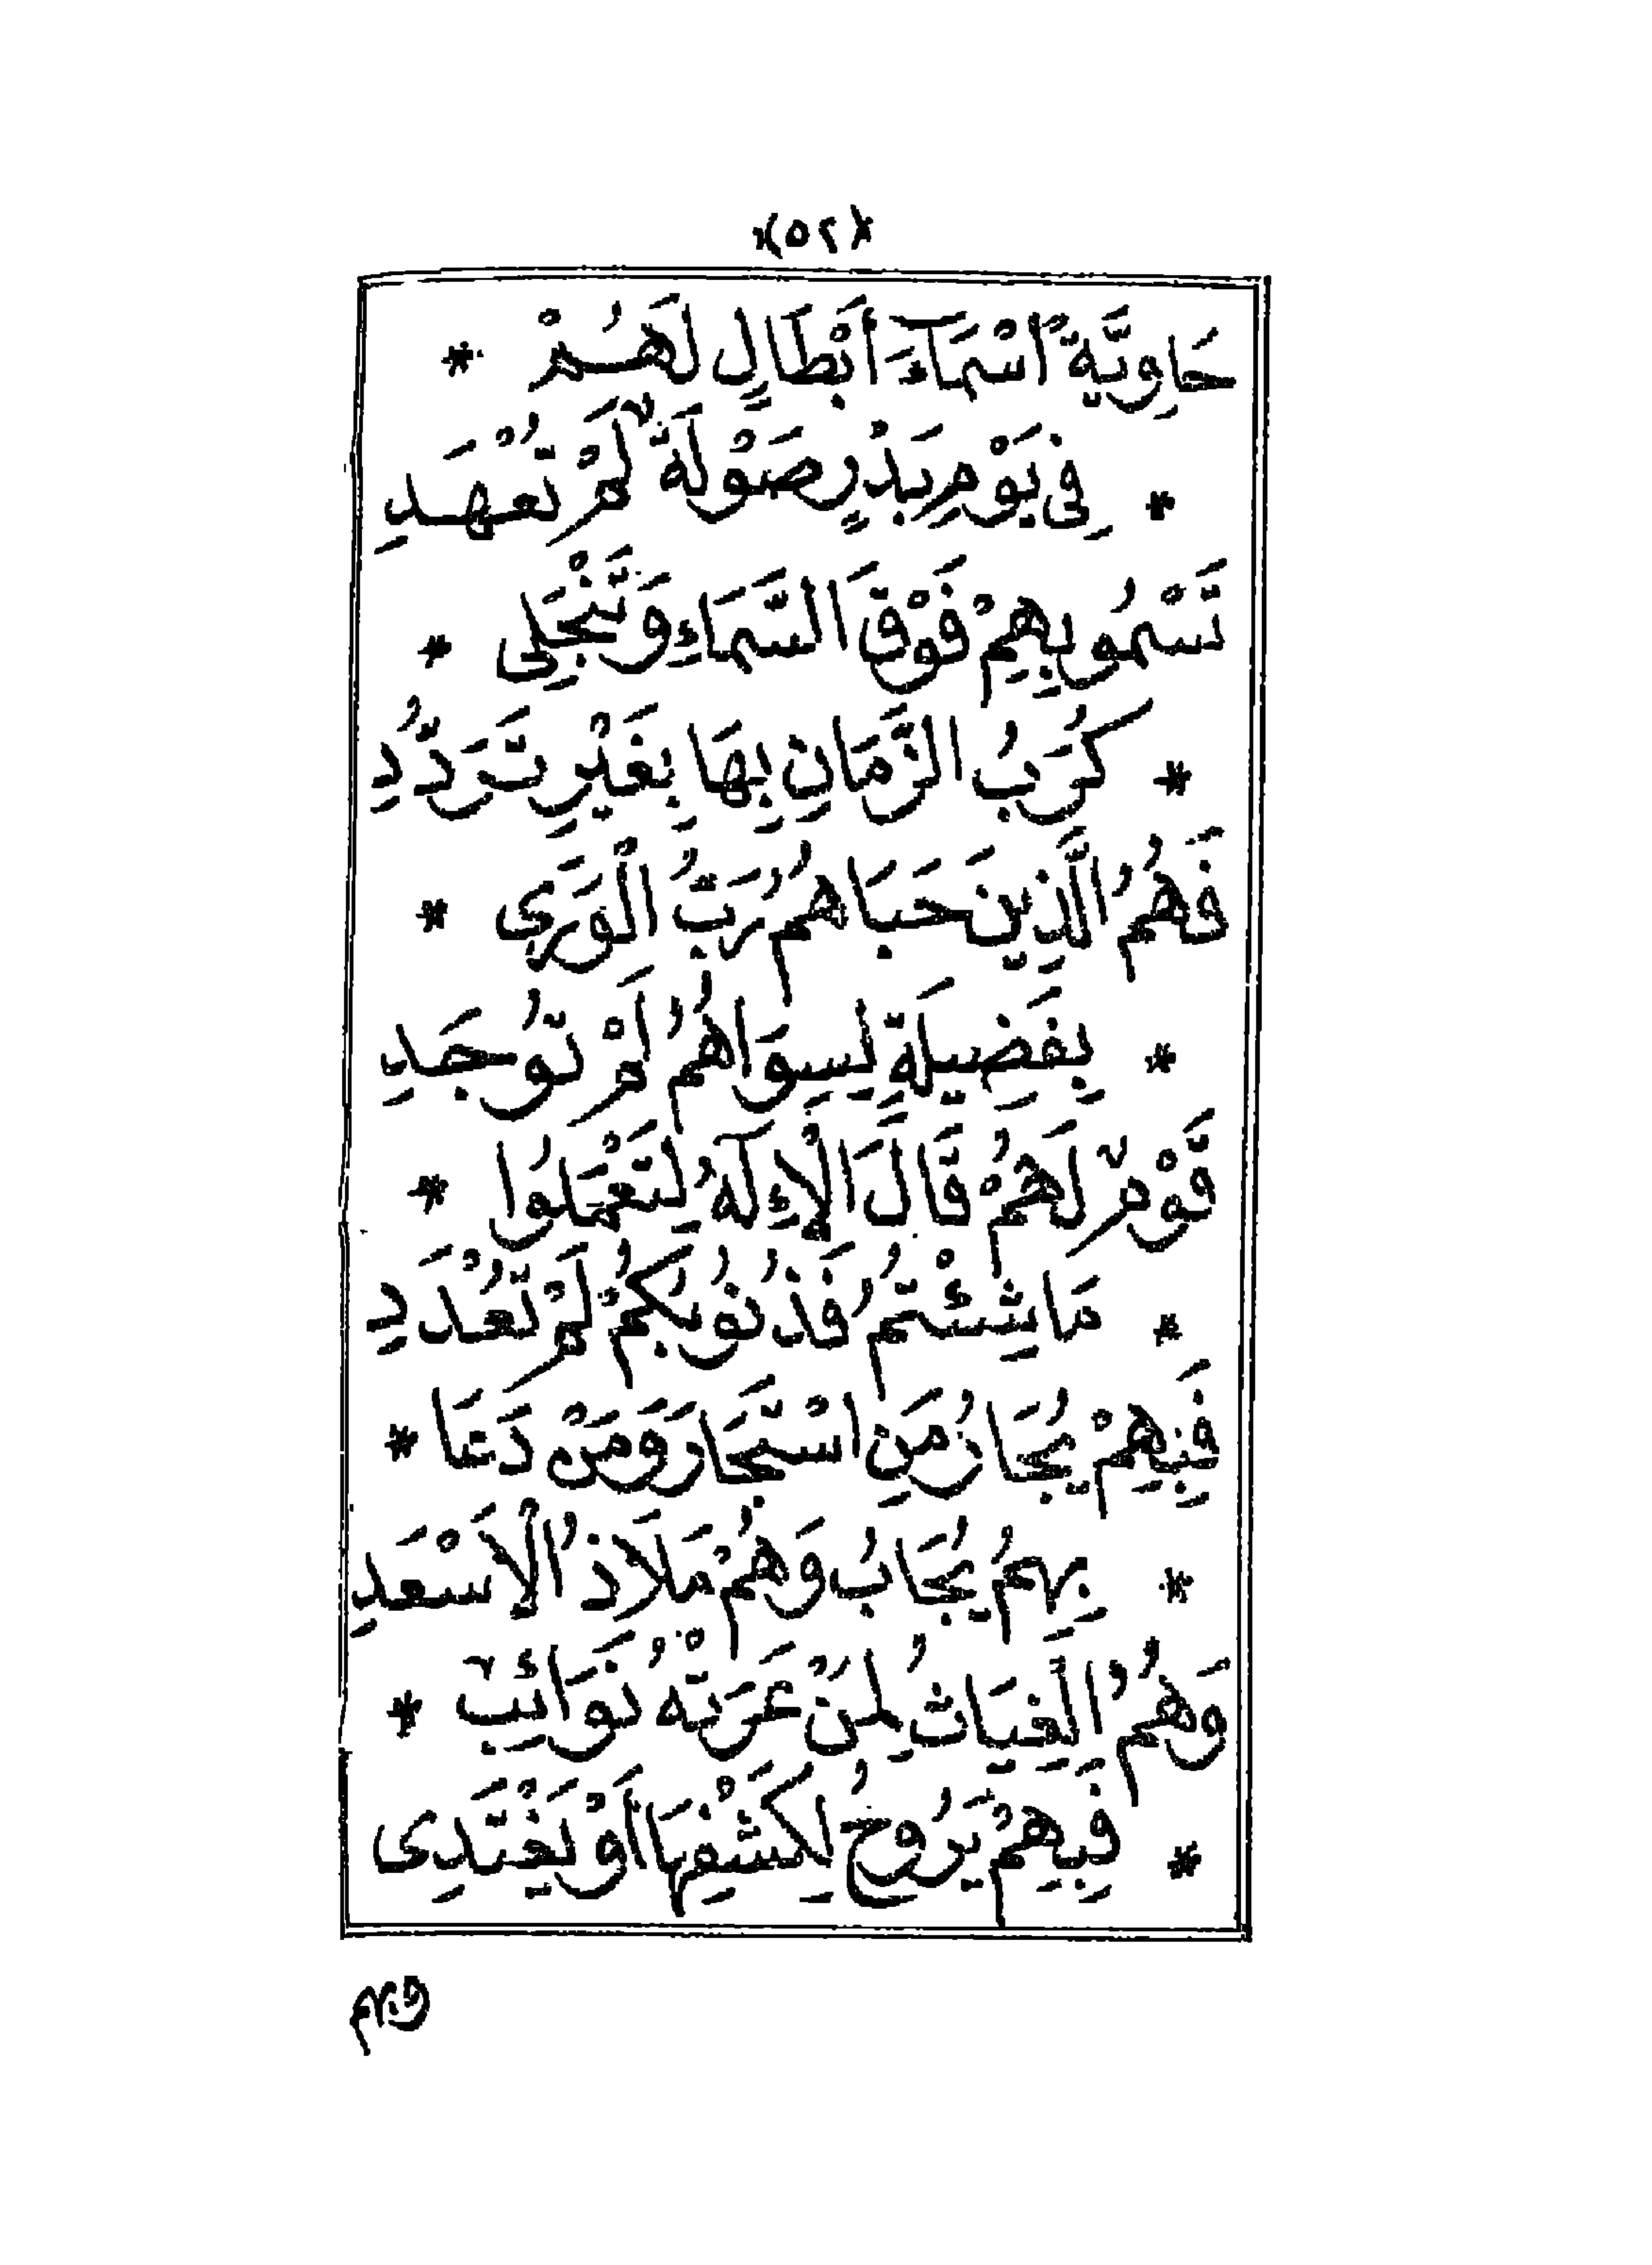 (٥٢)
حَاوِيَّةً اَسْمَآءَ أَبْطَالٍ لَهُمْ *
* فِي يَوْمِ بَدْرٍ صَوْلَةٌ لَمْ تُعْهَدِ
تَسْمُو بِهِمْ فَوْقَ السَّمَاءِ وَتَنْجَلِى *
* كُرَبُ الزَّمَانِ بِهَا بِغَيْرِ تَرَدُّدِ
فَهُمُ الَّذِينَ حَبَاهُمُ رَبُّ الْوَرَى *
* بِفَضِيلَةٍ لِسِوَاهُمُ لَمْ تُوجَدِ
قَوْمٌ لَهُمْ قَالَ الْإِلَهُ لِتَعْمَلُوا *
* مَا شِئْتُمُ فَذُنُوبُكُمْ لَمْ تُعْدَدِ
فَبِهِمْ يُجَارُ مَنِ اسْتَجَارَ وَمَنْ دَعَا *
* بِهِمُ يُجَابُ وَهُمْ مَلَاذُ الْاَسْعَدِ
وَهُمُ الْغِيَاثُ لِمَنْ عَرَتْهُ نَوَائِبٌ *
* فَبِهِمْ يَرُوحُ لِكَشْفِهَا أَوْ يَغْتَدِى